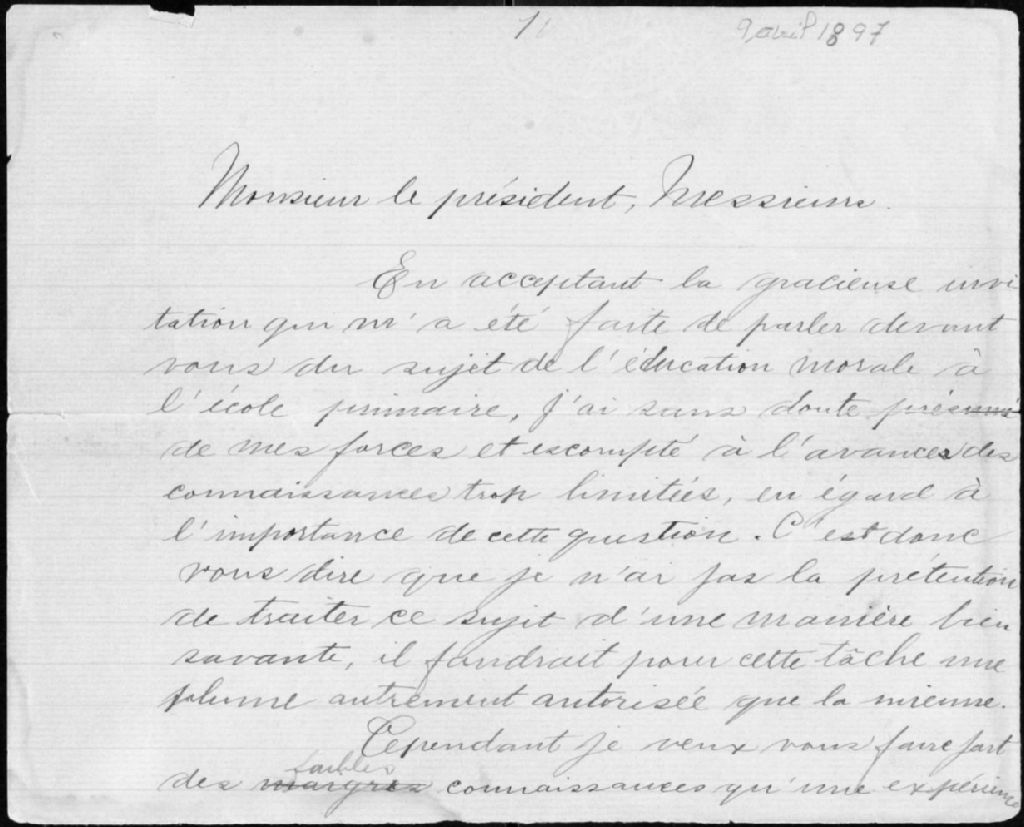 1
9 avril 1897
Monsieur le président, Messieurs.
En acceptant la gracieuse invi
tation qui m'a été faite de parler devant
vous du sujet de l'éducation morale à
l'école primaire, j'ai sans doute présumé
de mes forces et escompté à l'avance des
connaissances trop limitées, en égard à
l'importance de cette question. C'est donc
vous dire que je n'ai pas la prétention
de traiter ce sujet d'une manière bien
savante, il faudrait pour cette tâche une
plume autrement autorisée que la mienne.
Cependant je veux vous faire part
faibles
des maigres connaissances qu'une expérience